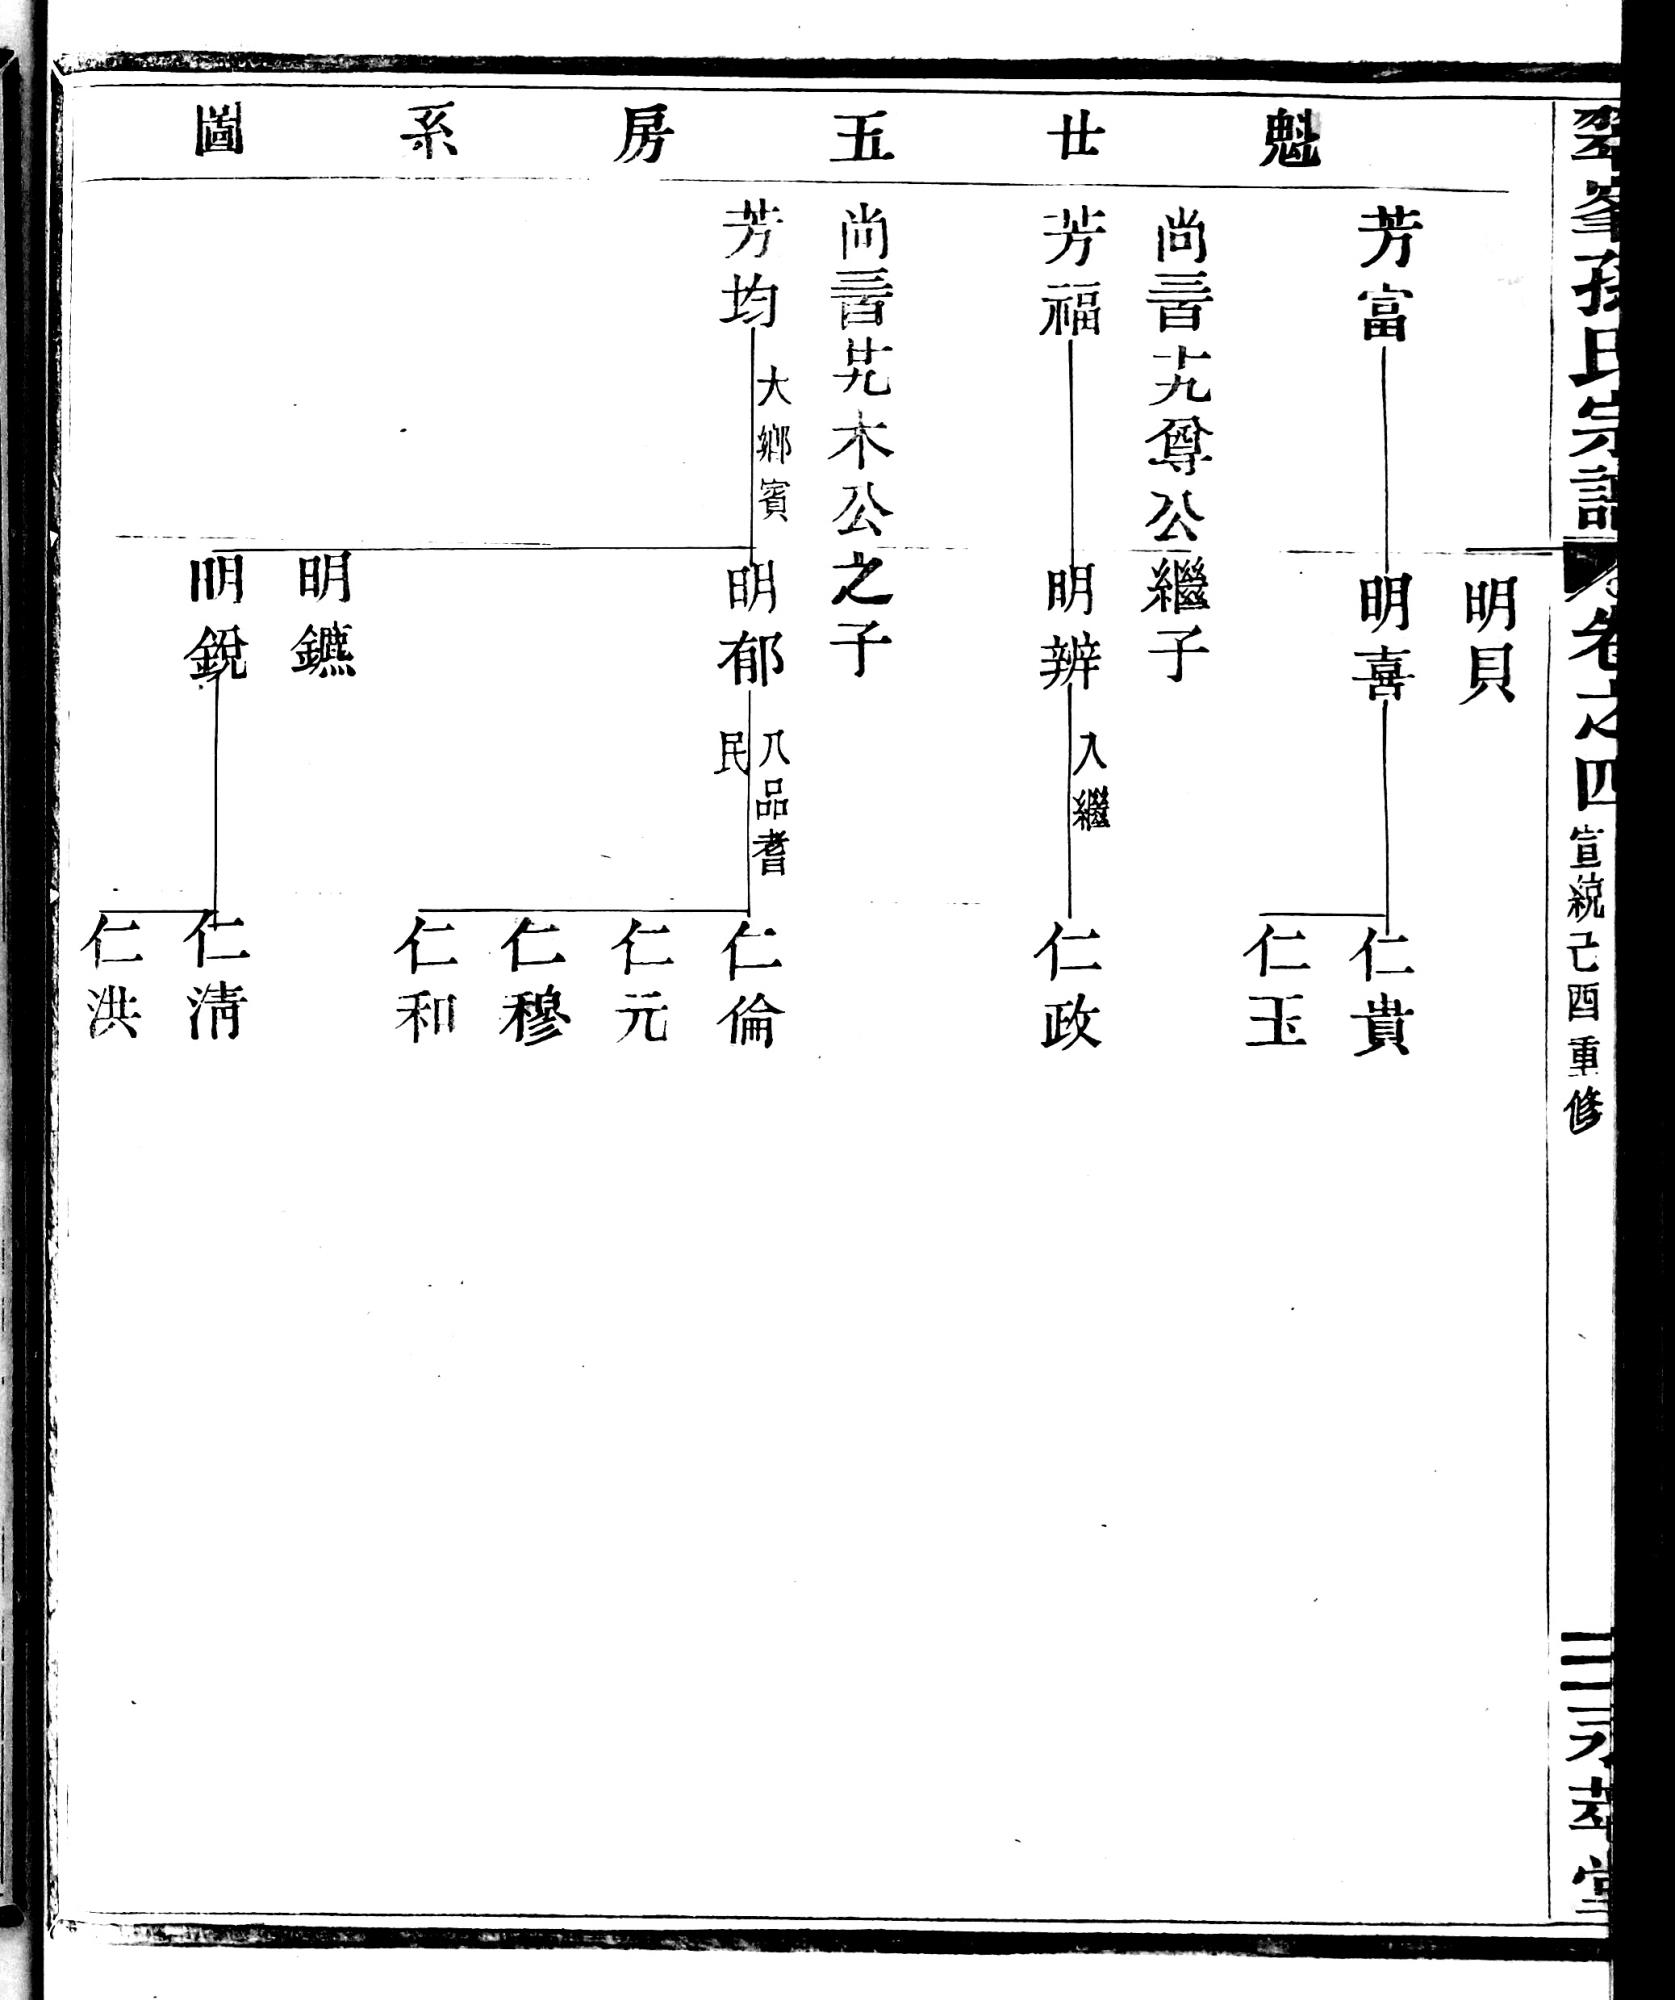 翠峯孫氏宗譜 卷之四 宣統己酉重修 永萃堂
魁廿五房系圖
明貝
芳富
明喜
仁貴
仁玉
尚三百十九尊公繼子
芳福
明辨 入繼
仁政
尚三百廿九木公之子
芳均 大鄉賓
明郁 八品耆民
仁倫
仁元
仁穆
仁和
明鑣
明銳
仁清
仁洪